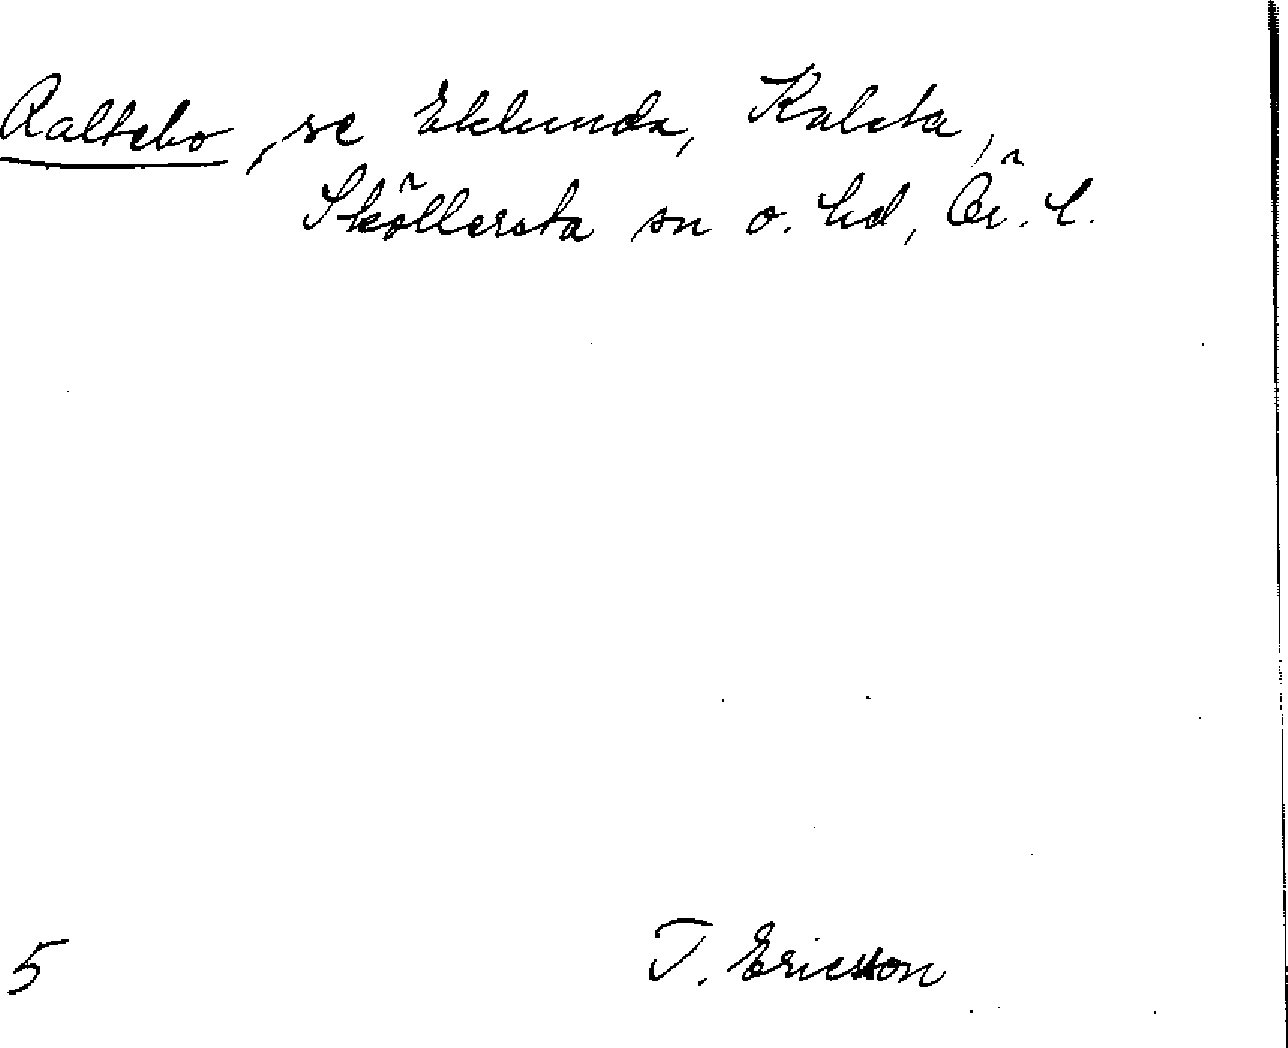 Raltebo, se Eklunda, Kalsta,
Sköllersta sn o. hd, Ör. l.
5
T. Ericsson